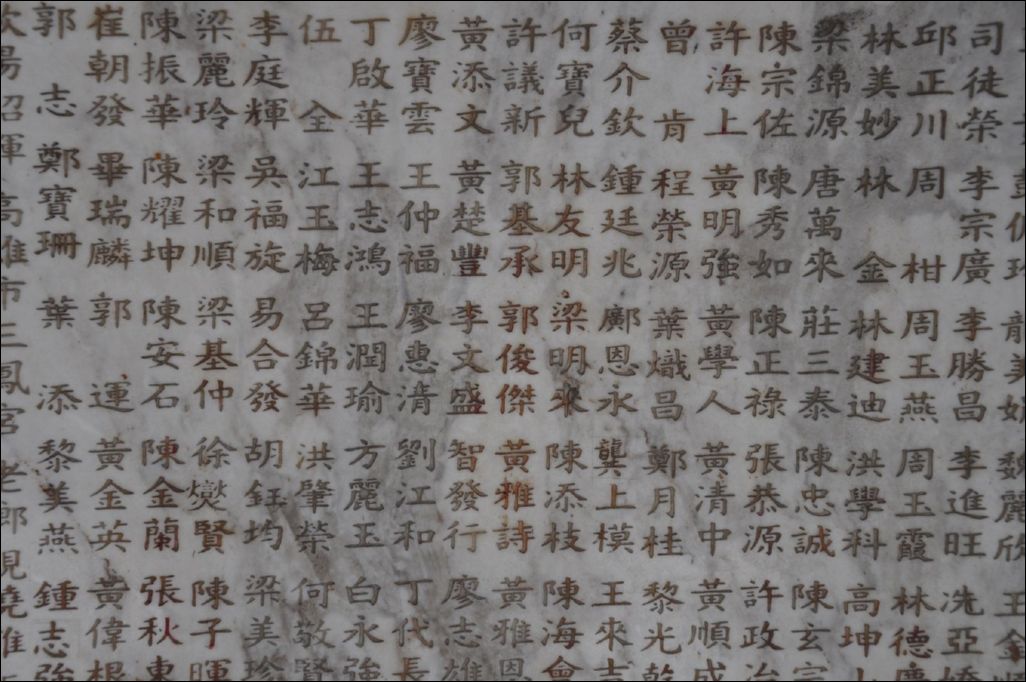 司徒榮 李宗廣 李勝昌 李進旺 冼亞嬌
邱正川 周柑 周玉燕 周玉霞 林德
林美妙 林金 林建迪 洪學科 高坤
梁錦源 唐萬來 莊三泰 陳忠誠 陳玄宗
陳宗佐 陳秀如 陳正祿 張恭源 許政治
許海上 黃明強 黃學人 黃清中 黃順成
曾肯 程榮源 葉熾昌 鄭月桂 黎光乾
蔡介欽 鍾廷兆 鄺恩永 龔上模 王來吉
何寶兒 林友明 梁明來 陳添枝 陳海會
許議新 郭基承 郭俊傑 黃雅詩 黃雅恩
黃添文 黃楚豐 李文盛 智發行 廖志雄
廖寶雲 王仲福 廖惠清 劉江和 丁代長
丁啟華 王志鴻 王潤瑜 方麗玉 白永強
伍全 江玉梅 呂錦華 洪肇榮 何敬賢
李庭輝 吳福旋 易合發 胡鈺均 梁美珍
梁麗玲 梁和順 梁基仲 徐燮賢 陳子暉
陳振華 陳耀坤 陳安石 陳金蘭 張秋東
崔朝發 畢瑞麟 郭運 黃金英 黃偉根
郭志 鄭寶珊 葉添 黎美燕 鍾志強
高雄市三鳳宮